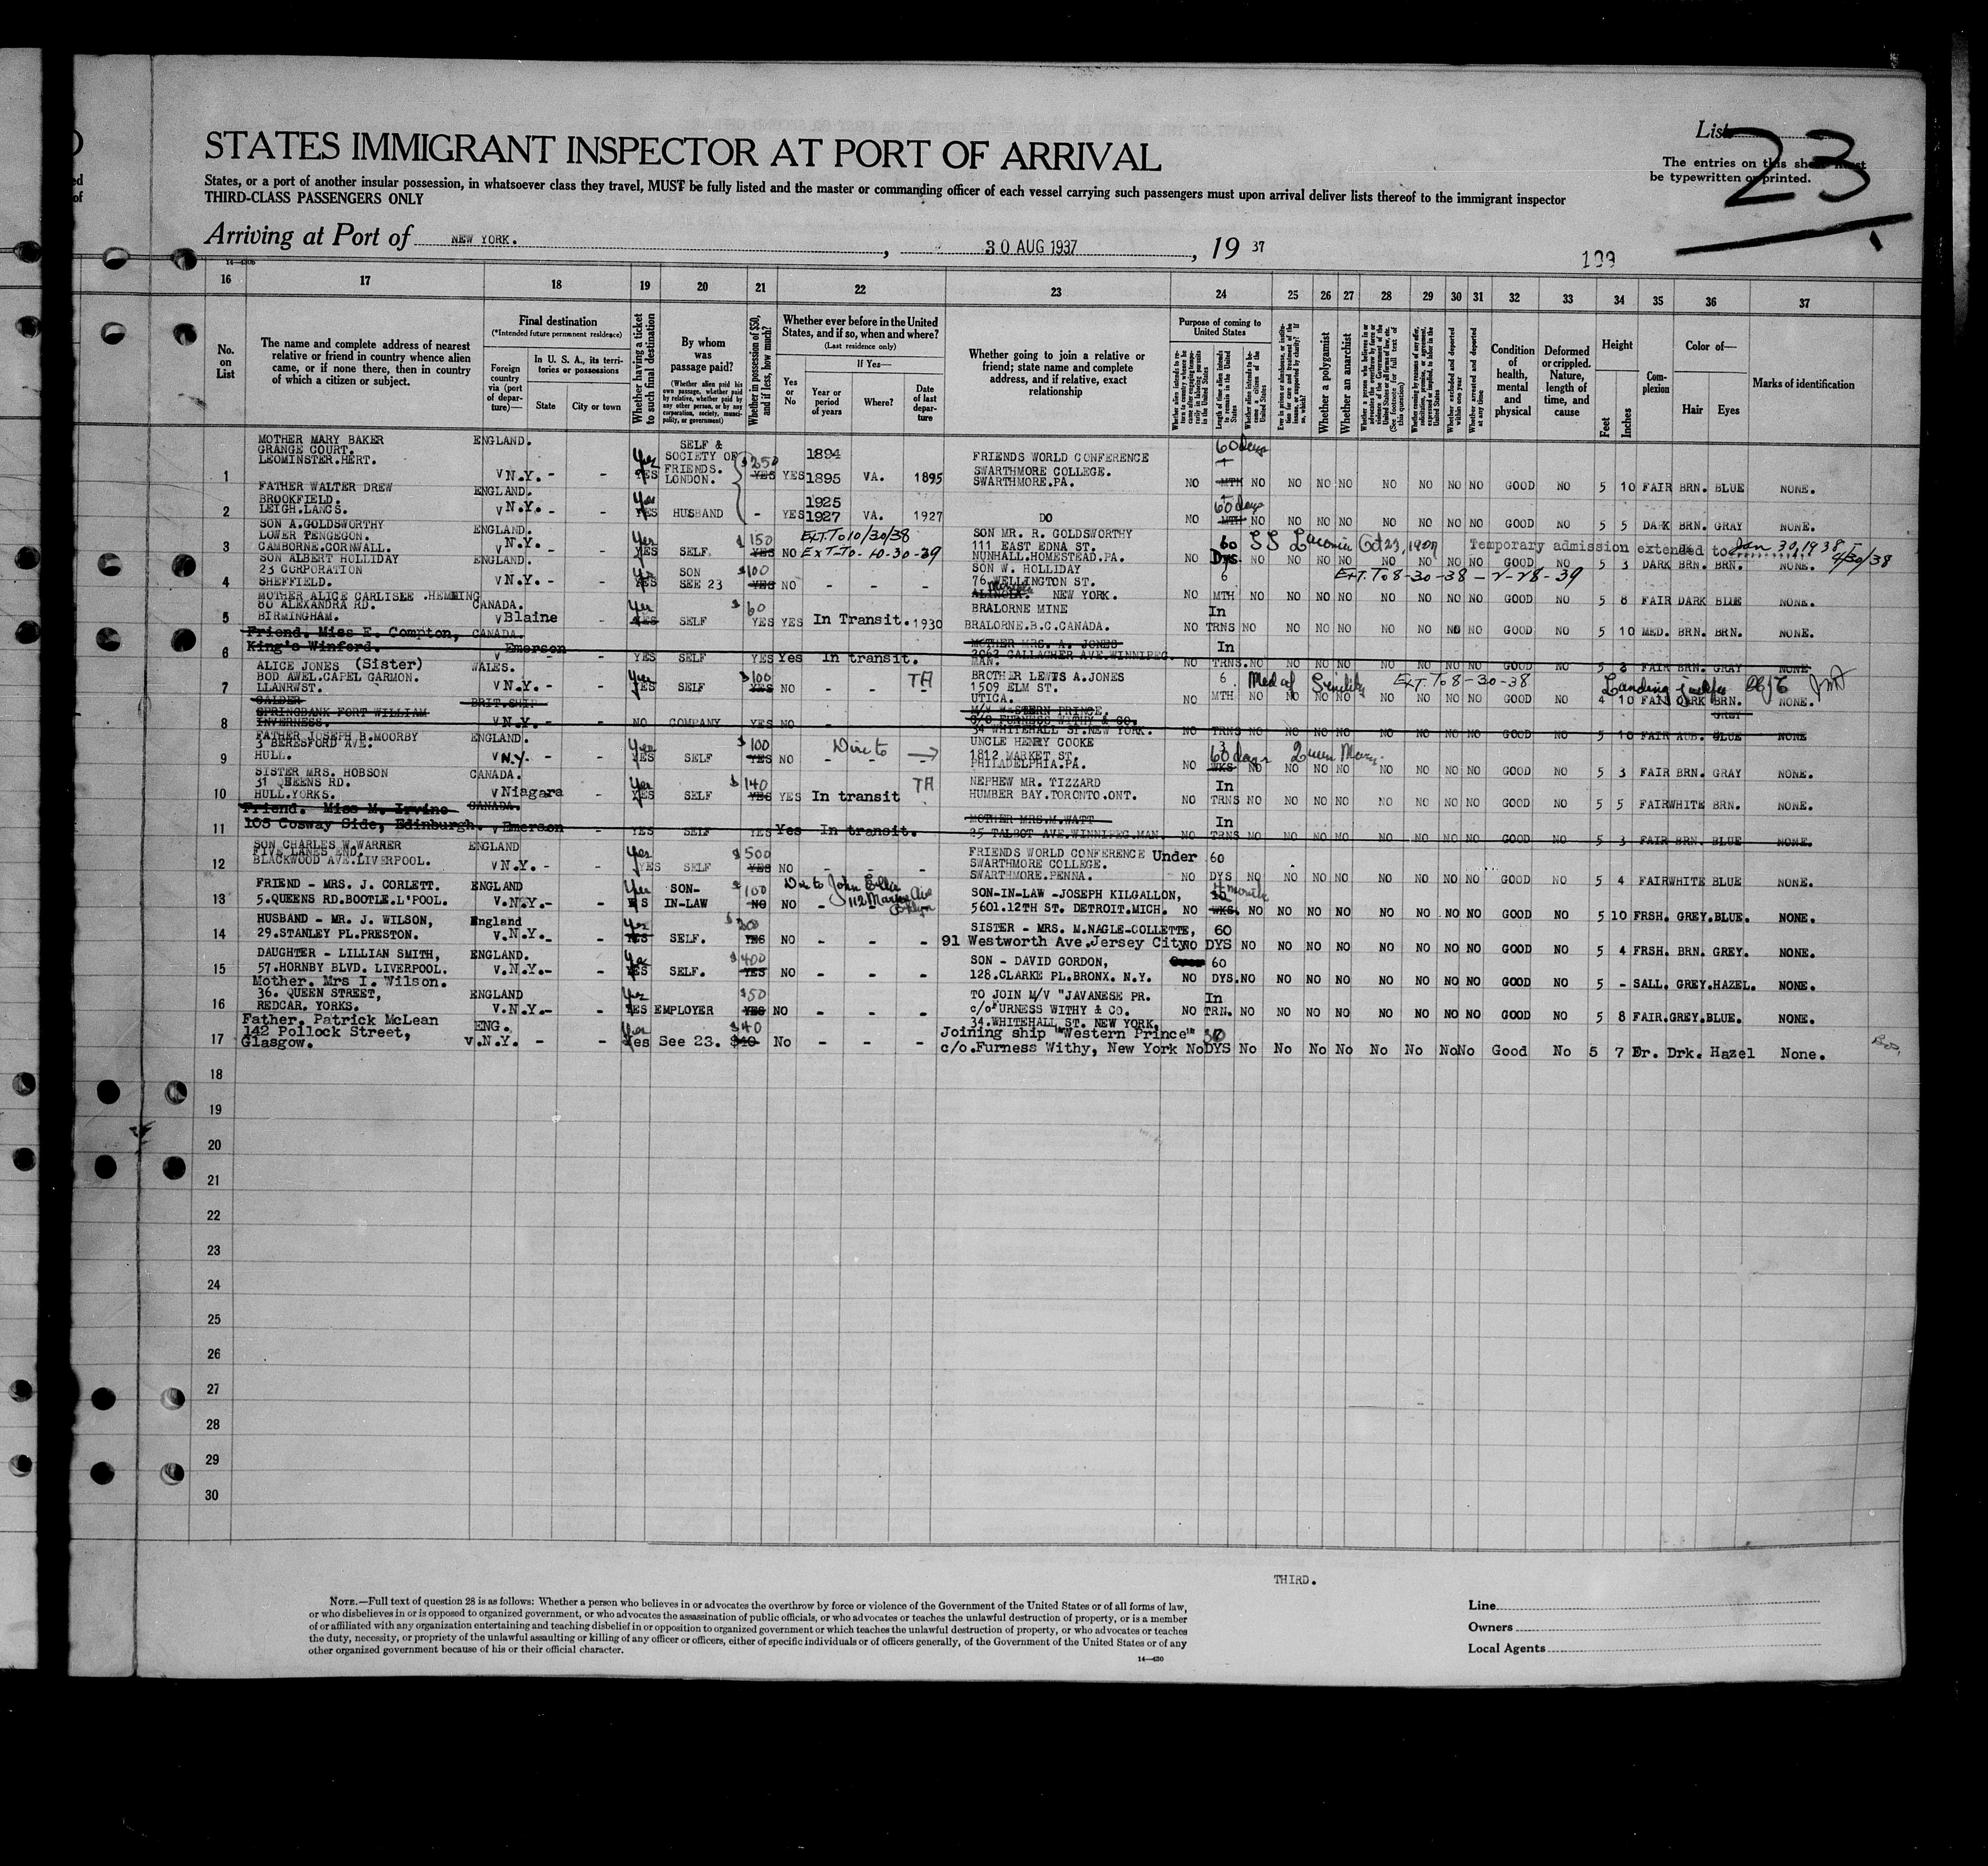 List 23
The entries on this sheet must
be typewritten or printed.
STATES IMMIGRANT INSPECTOR AT PORT OF ARRIVAL
States, or a port of another insular possession, in whatsoever class they travel, MUST be fully listed and the master or commanding officer of each vessel carrying such passengers must upon arrival deliver lists thereof to the immigrant inspector
THIRD-CLASS PASSENGERS ONLY
Arriving at Port of NEW YORK. , 30 AUG 1937 , 19 37
16 17 18 19 20 21 22 23 24 25 26 27 28 29 30 31 32 33 34 35 36 37
No. on List
The name and complete address of nearest relative or friend in country whence alien came, or if none there, then in country of which a citizen or subject.
Final destination
(*Intended future permanent residence)
Foreign country via (port of departure)—
In U. S. A., its territories or possessions
State City or town
Whether having a ticket to such final destination
By whom was passage paid?
(Whether alien paid his own passage, whether paid by relative, whether paid by any other person, or by any corporation, society, municipality, or government)
Whether in possession of $50, and if less, how much?
Whether ever before in the United States, and if so, when and where?
(Last residence only)
Yes or No
If Yes—
Year or period of years
Where?
Date of last departure
Whether going to join a relative or friend; state name and complete address, and if relative, exact relationship
Purpose of coming to United States
Whether a polygamist
Whether an anarchist
Condition of health, mental and physical
Deformed or crippled. Nature, length of time, and cause
Height
Feet Inches
Complexion
Color of—
Hair Eyes
Marks of identification
MOTHER MARY BAKER ENGLAND. SELF & 1894 60 days
GRANGE COURT. SOCIETY OF FRIENDS WORLD CONFERENCE
LEOMINSTER.HERT. FRIENDS. $250 SWARTHMORE COLLEGE.
1 V N.Y. - - YES LONDON. YES YES 1895 VA. 1895 SWARTHMORE.PA. NO MTH NO NO NO NO NO NO NO NO GOOD NO 5 10 FAIR BRN. BLUE NONE.
FATHER WALTER DREW ENGLAND. 1925 60 days
BROOKFIELD.
2 LEIGH.LANCS. V N.Y. - - YES HUSBAND - YES 1927 VA. 1927 DO NO MTH NO NO NO NO NO NO NO NO GOOD NO 5 5 DARK BRN. GRAY NONE.
SON A.GOLDSWORTHY ENGLAND. $150 EXT. TO 10/30/38 SON MR. R. GOLDSWORTHY
LOWER PENGEGON. V N.Y. 111 EAST EDNA ST. 60 SS Laconia Oct 23, 1937 Temporary admission extended to Jan 30, 1938 4/30/38
3 CAMBORNE.CORNWALL. - YES SELF. YES NO EXT-TO-10-30-39 MUNHALL.HOMESTEAD.PA. NO Dys. NO NO NO NO NO NO NO NO GOOD NO 5 3 DARK BRN. BRN. NONE.
SON ALBERT HOLLIDAY ENGLAND. SON W. HOLLIDAY
23 CORPORATION SON $100 76 WELLINGTON ST. 6 EXT. TO 8-30-38 - 2-28-39
4 SHEFFIELD. V N.Y. - - YES SEE 23 YES NO NEW YORK. NO MTH NO NO NO NO NO NO NO NO GOOD NO 5 8 FAIR DARK BLUE NONE.
MOTHER ALICE CARLISLE .HEMMING CANADA.
80 ALEXANDRA RD. $60 BRALORNE MINE In
5 BIRMINGHAM. V Blaine - YES SELF YES YES In Transit. 1930 BRALORNE.B.C.CANADA. NO TRNS NO NO NO NO NO NO NO NO GOOD NO 5 10 MED. BRN. BRN. NONE.
Friend. Miss E. Compton, CANADA. MOTHER MRS. A. JONES In
6 King's Winford. V Emerson - YES SELF YES Yes In transit. 2063 GALLAGHER AVE.WINNIPEG. MAN. NO TRNS. NO NO NO NO NO NO NO NO GOOD NO 5 8 FAIR BRN. GRAY NONE
ALICE JONES (Sister) WALES. $100 TA BROTHER LEWIS A.JONES 6 Med cf Senility EXT. TO 8-30-38
BOD AWEL.CAPEL GARMON. 1509 ELM ST.
7 LLANRWST. V N.Y. - - YES SELF YES NO - - - UTICA. NO MTH NO NO NO NO NO NO NO NO GOOD NO 4 10 FAIR DARK BRN. NONE.
CALDER BRIT.SHIP. M/V WESTERN PRINCE. GREY
SPRINGBANK FORT WILLIAM C/O FURNESS WITHY & CO.
8 INVERNESS. V N.Y. - - NO COMPANY YES NO 34 WHITEHALL ST.NEW YORK. NO TRNS NO NO NO NO NO NO NO NO GOOD NO 5 10 FAIR AUB. BLUE NONE
FATHER JOSEPH B.MOORBY ENGLAND. $100 UNCLE HENRY COOKE 3
3 BERESFORD AVE. 1812 MARKET ST. 60 days Queen Mary.
9 HULL. V N.Y. - - YES SELF YES NO - - - PHILADELPHIA.PA. NO WKS NO NO NO NO NO NO NO NO GOOD NO 5 3 FAIR BRN. GRAY NONE.
SISTER MRS. HOBSON CANADA. $140 TA NEPHEW MR. TIZZARD In
31 QUEENS RD.
10 HULL.YORKS. V Niagara - YES SELF YES YES In transit HUMBER BAY.TORONTO.ONT. NO TRNS NO NO NO NO NO NO NO NO GOOD NO 5 5 FAIR WHITE BRN. NONE.
Friend. Miss M. Irvine CANADA. MOTHER MRS.M.WATT In
11 105 Cosway Side, Edinburgh. V Emerson - YES SELF YES Yes In transit. 25 TALBOT AVE.WINNIPEG.MAN. NO TRNS NO NO NO NO NO NO NO NO GOOD NO 5 3 FAIR BRN. BLUE NONE.
SON CHARLES W.WARRER ENGLAND $500 FRIENDS WORLD CONFERENCE Under 60
FIVE LANES END. SWARTHMORE COLLEGE.
12 BLACKWOOD AVE.LIVERPOOL. V N.Y. - - YES SELF YES NO - - - SWARTHMORE.PENNA. NO DYS NO NO NO NO NO NO NO NO GOOD NO 5 4 FAIR WHITE BLUE NONE.
FRIEND - MRS. J. CORLETT. ENGLAND SON- $100 SON-IN-LAW -JOSEPH KILGALLON,
13 5.QUEENS RD.BOOTLE.L'POOL. V.N.Y.- - YES IN-LAW NO NO - - - 5601.12TH ST. DETROIT.MICH. NO WKS. NO NO NO NO NO NO NO NO GOOD NO 5 10 FRSH. GREY.BLUE. NONE.
HUSBAND - MR. J. WILSON, England SISTER - MRS. M.NAGLE-COLLETTE, 60
14 29.STANLEY PL.PRESTON. V.N.Y.- - YES SELF. YES NO - - - 91 Westworth Ave.Jersey City NO DYS NO NO NO NO NO NO NO NO GOOD NO 5 4 FRSH. BRN. GREY. NONE.
DAUGHTER - LILLIAN SMITH, ENGLAND. $400 SON - DAVID GORDON, Over 60
15 57.HORNBY BLVD. LIVERPOOL. V.N.Y.- - YES SELF. YES NO - - - 128.CLARKE PL.BRONX. N.Y. NO DYS. NO NO NO NO NO NO NO NO GOOD NO 5 - SALL. GREY.HAZEL. NONE.
Mother. Mrs I. Wilson.
36. QUEEN STREET, ENGLAND $50 TO JOIN M/V "JAVANESE PR. In
16 REDCAR. YORKS. V.N.Y.- - YES EMPLOYER YES NO - - - c/o FURNESS WITHY & CO. NO TRN. NO NO NO NO NO NO NO NO GOOD NO 5 8 FAIR.GREY.BLUE. NONE.
34.WHITEHALL ST. NEW YORK,
Father. Patrick McLean ENG. $40 Joining ship "Western Prince"
142 Pollock Street,
17 Glasgow. V.N.Y. - - Yes See 23. $40 No - - - c/o.Furness Withy, New York No DYS No No No No No No No No Good No 5 7 Fr. Drk. Hazel None.
18
19
20
21
22
23
24
25
26
27
28
29
30
THIRD.
NOTE.—Full text of question 28 is as follows: Whether a person who believes in or advocates the overthrow by force or violence of the Government of the United States or of all forms of law,
or who disbelieves in or is opposed to organized government, or who advocates the assassination of public officials, or who advocates or teaches the unlawful destruction of property, or is a member
of or affiliated with any organization entertaining and teaching disbelief in or opposition to organized government or which teaches the unlawful destruction of property, or who advocates or teaches
the duty, necessity, or propriety of the unlawful assaulting or killing of any officer or officers, either of specific individuals or of officers generally, of the Government of the United States or of any
other organized government because of his or their official character.
14—430
Line
Owners
Local Agents